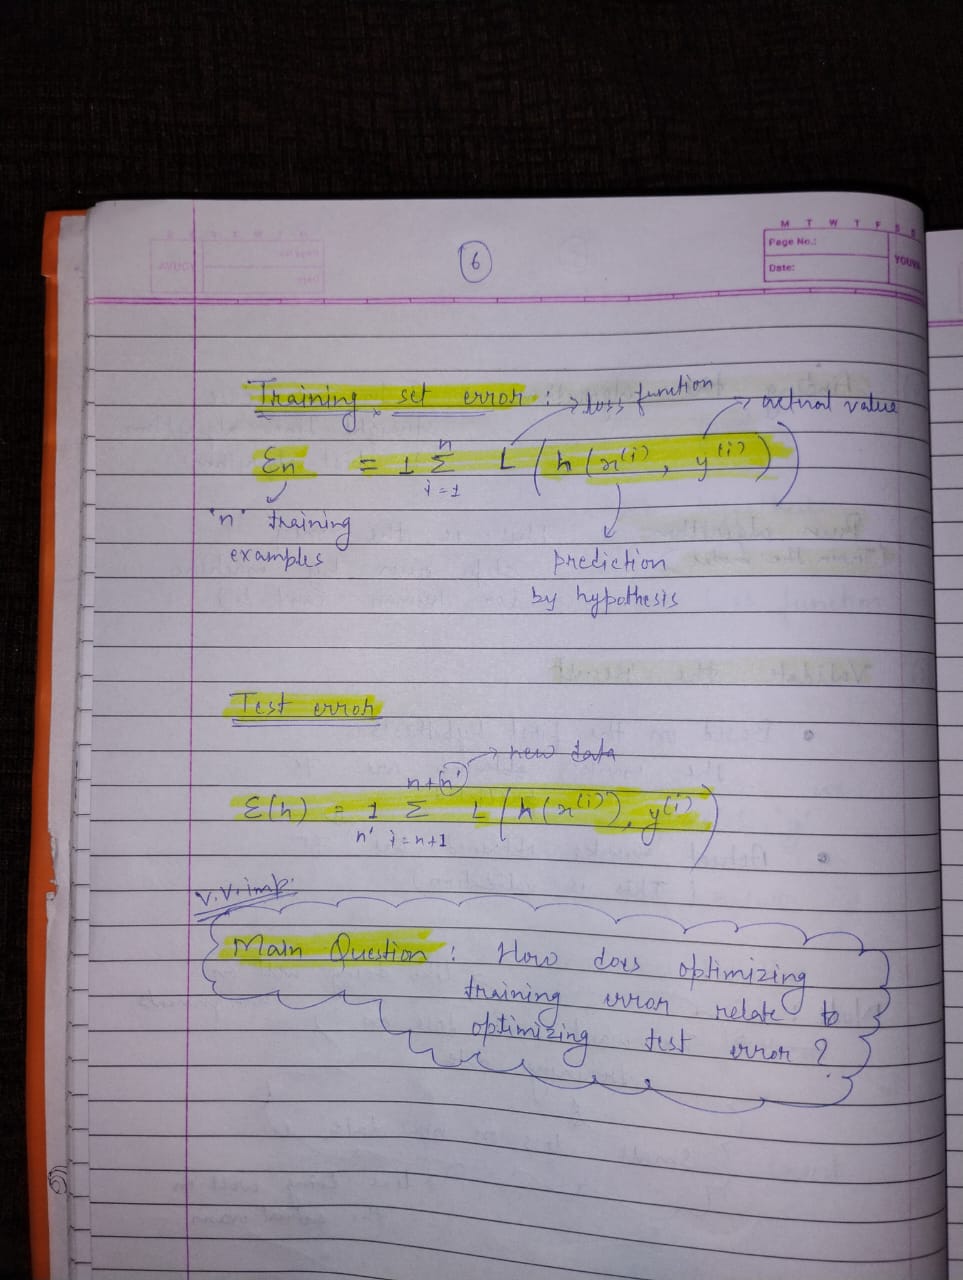 M T W T F S S
Page No.:
Date:
YOUVA
6
Training set error :
→ loss function
→ actual value
Ɛn = 1 Σ L ( h (x⁽ⁱ⁾, y⁽ⁱ⁾ )
n
i=1
"n" training
examples
prediction
by hypothesis
Test error
→ new data
n+n'
Ɛ(h) = 1 Σ L ( h (x⁽ⁱ⁾), y⁽ⁱ⁾ )
n' i=n+1
V.V.imp.
Main Question : How does optimizing
training error relate to
optimizing test error ?